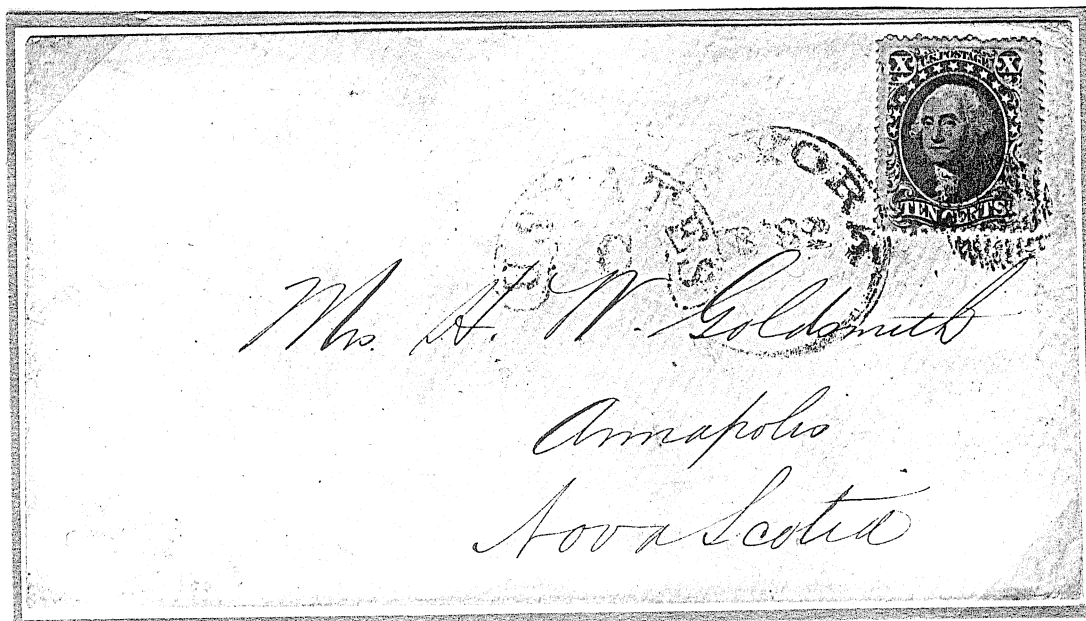 X U.S. POSTAGE X
TEN CENTS
YORK
STATES
Mrs. H. W. Goldsmith
Annapolis
Nova Scotia